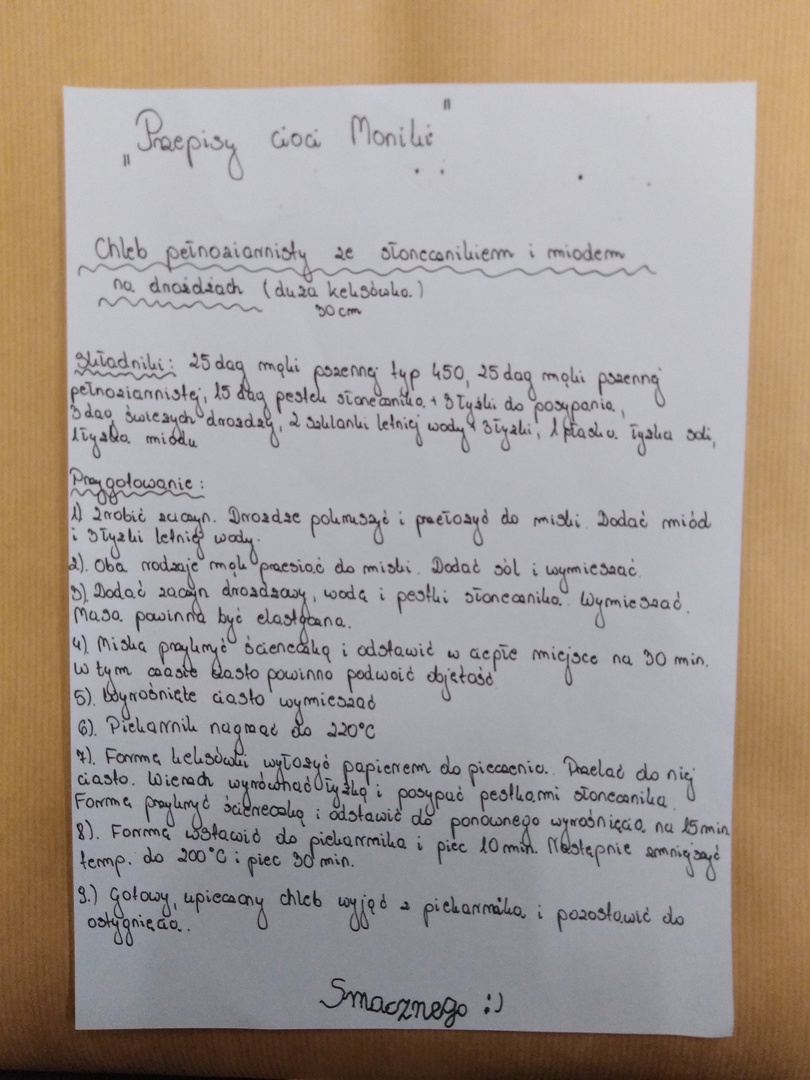 „Przepisy cioci Moniki"
Chleb pełnoziarnisty ze słonecznikiem i miodem
na drożdżach (duża keksówka)
30 cm
Składniki: 25 dag mąki pszennej typ 450, 25 dag mąki pszennej
pełnoziarnistej, 15 dag pestek słonecznika + 3 łyżki do posypania,
3 dag świeżych drożdży, 2 szklanki letniej wody + 3 łyżki, 1 płaska łyżka soli,
1 łyżka miodu
Przygotowanie:
1) Zrobić zaczyn. Drożdże pokruszyć i przełożyć do miski. Dodać miód
i 3 łyżki letniej wody.
2). Oba rodzaje mąk przesiać do miski. Dodać sól i wymieszać.
3). Dodać zaczyn drożdżowy, wodę i pestki słonecznika. Wymieszać.
Masa powinna być elastyczna.
4). Miskę przykryć ściereczką i odstawić w ciepłe miejsce na 30 min.
W tym czasie ciasto powinno podwoić objętość
5). Wyrośnięte ciasto wymieszać
6). Piekarnik nagrzać do 220°C
7). Formę keksówki wyłożyć papierem do pieczenia. Przelać do niej
ciasto. Wierzch wyrównać łyżką i posypać pestkami słonecznika.
Formę przykryć ściereczką i odstawić do ponownego wyrośnięcia na 15 min
8). Formę wstawić do piekarnika i piec 10 min. Następnie zmniejszyć
temp. do 200°C i piec 30 min.
9.) Gotowy, upieczony chleb wyjąć z piekarnika i pozostawić do
ostygnięcia.
Smacznego :)